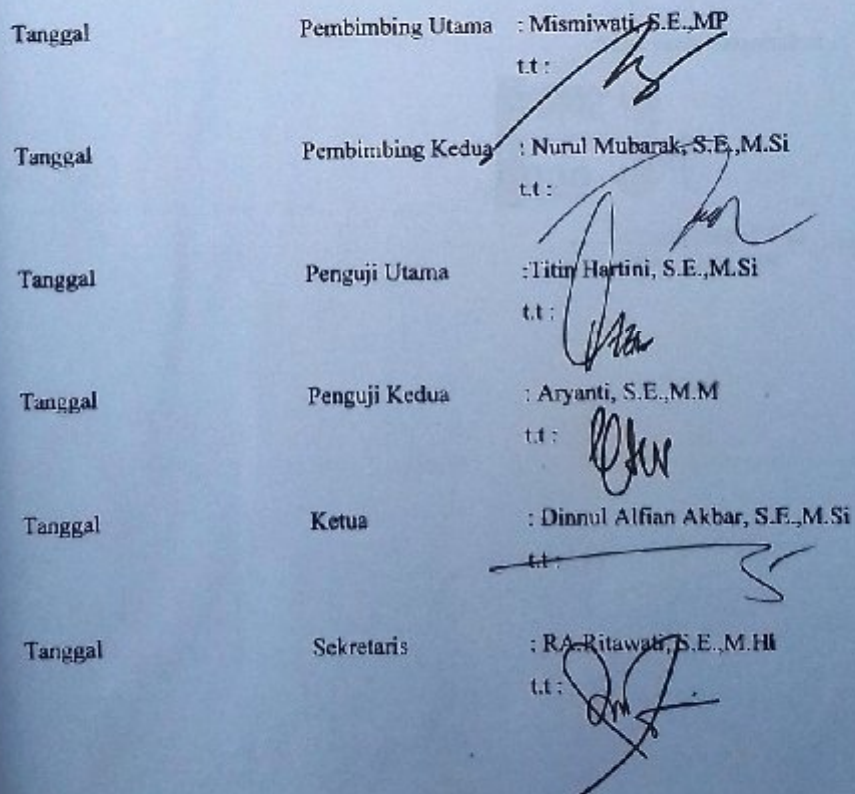 Tanggal Pembimbing Utama : Mismiwati, S.E.,MP
t.t :
Tanggal Pembimbing Kedua : Nurul Mubarak, S.E.,M.Si
t.t :
Tanggal Penguji Utama :Titin Hartini, S.E.,M.Si
t.t :
Tanggal Penguji Kedua : Aryanti, S.E.,M.M
t.t :
Tanggal Ketua : Dinnul Alfian Akbar, S.E.,M.Si
t.t :
Tanggal Sekretaris : RA.Ritawati, S.E.,M.HI
t.t :